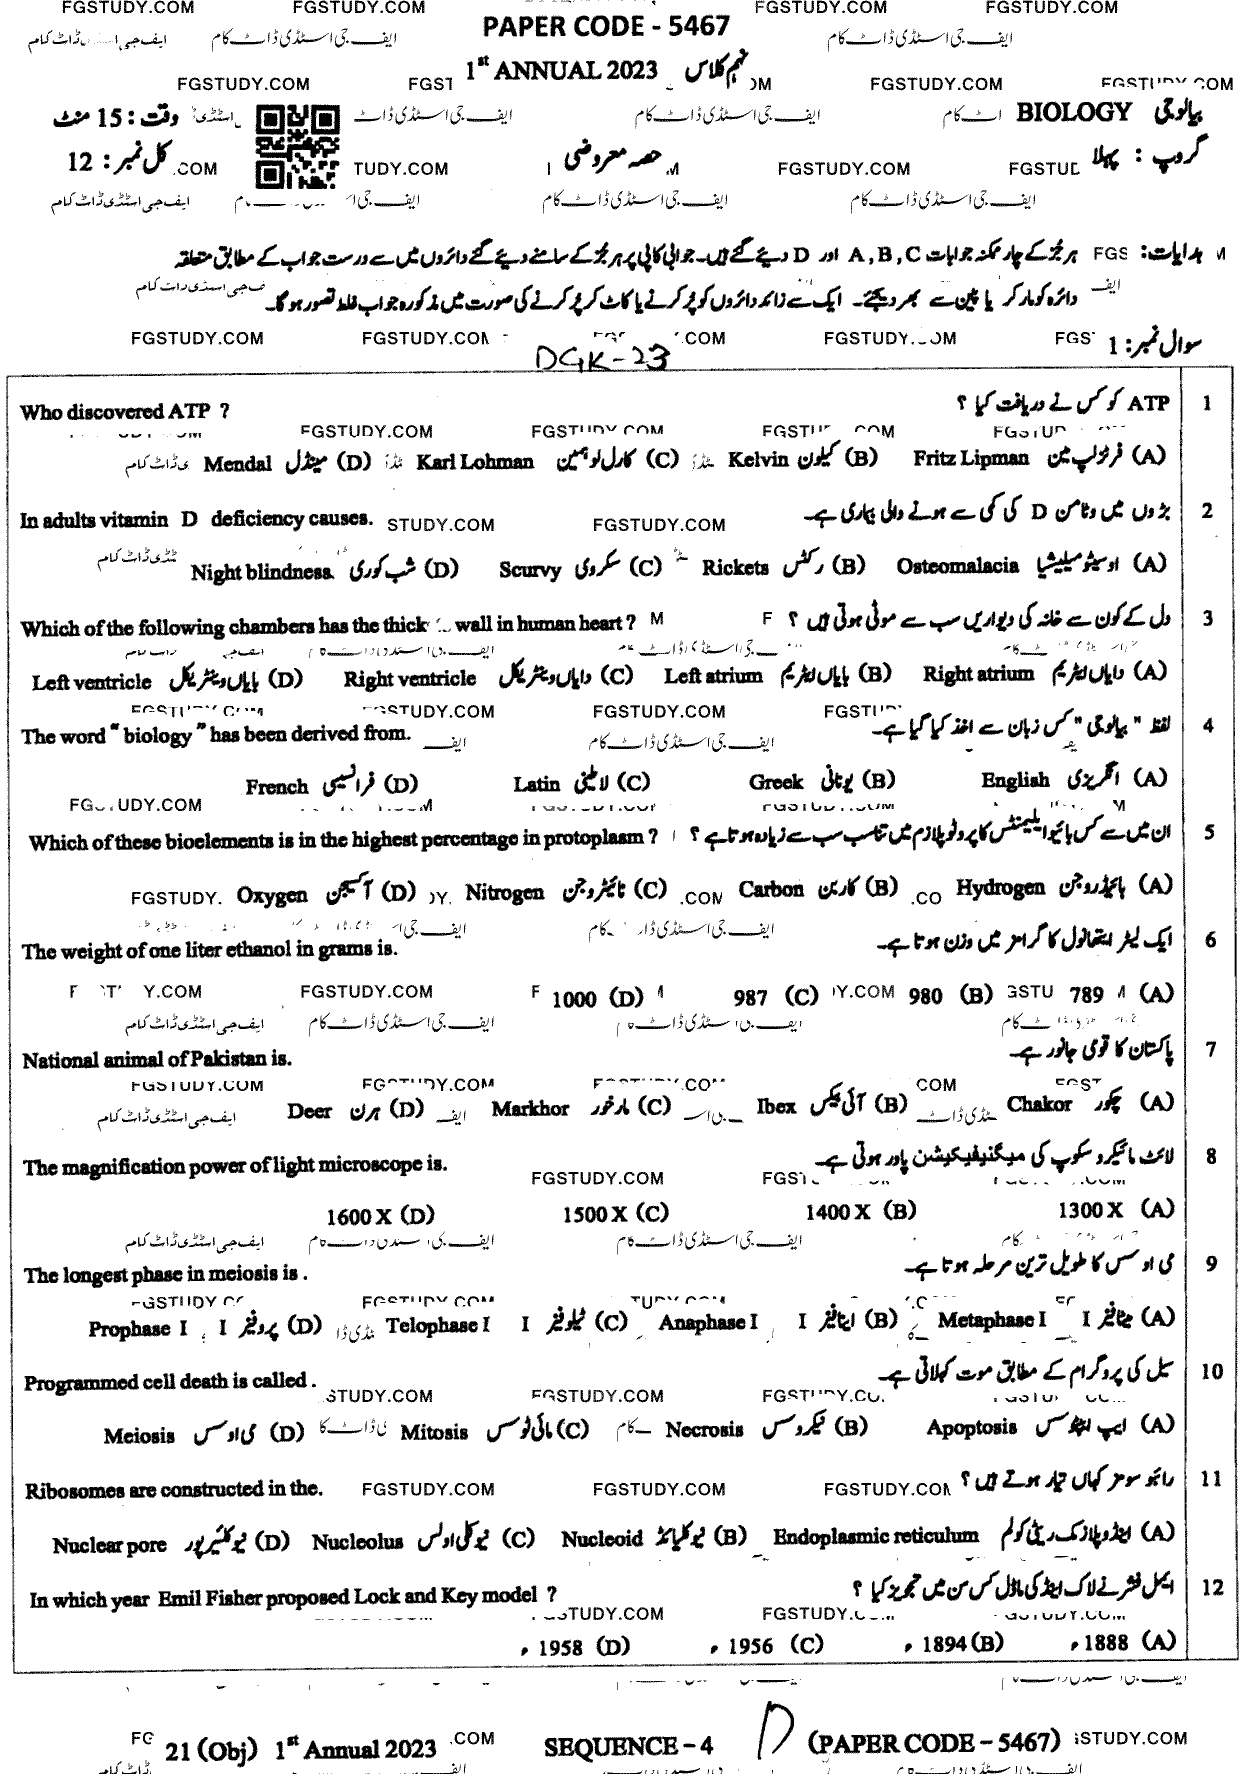 PAPER CODE - 5467
1st ANNUAL 2023 نہم کلاس
BIOLOGY بیالوجی
وقت : 15 منٹ
گروپ : پہلا
حصہ معروضی
کل نمبر : 12
ہدایات: ہر جُز کے چار ممکنہ جوابات A, B, C اور D دیئے گئے ہیں۔ جوابی کاپی پر ہر جُز کے سامنے دیئے گئے دائروں میں سے درست جواب کے مطابق متعلقہ
دائرہ کو مارکر یا پین سے بھر دیجئے۔ ایک سے زائد دائروں کو پُر کرنے یا کاٹ کر پُر کرنے کی صورت میں مذکورہ جواب غلط تصور ہوگا۔
سوال نمبر: 1
DGK-23
1 ATP کو کس نے دریافت کیا ؟ Who discovered ATP ?
(A) فرٹزلپ مین Fritz Lipman (B) کیلون Kelvin (C) کارل لوہمین Karl Lohman (D) مینڈل Mendal
2 بڑوں میں وٹامن D کی کمی سے ہونے والی بیماری ہے۔ In adults vitamin D deficiency causes.
(A) اوسٹیومیلیشیا Osteomalacia (B) رکٹس Rickets (C) سکروی Scurvy (D) شب کوری Night blindness.
3 دل کے کون سے خانہ کی دیواریں سب سے موٹی ہوتی ہیں ؟ Which of the following chambers has the thick wall in human heart ?
(A) دایاں ایٹریم Right atrium (B) بایاں ایٹریم Left atrium (C) دایاں وینٹریکل Right ventricle (D) بایاں وینٹریکل Left ventricle
4 لفظ " بیالوجی " کس زبان سے اخذ کیا گیا ہے۔ The word " biology " has been derived from.
(A) انگریزی English (B) یونانی Greek (C) لاطینی Latin (D) فرانسیسی French
5 ان میں سے کس بائیو ایلیمنٹس کا پروٹوپلازم میں تناسب سب سے زیادہ ہوتا ہے ؟ Which of these bioelements is in the highest percentage in protoplasm ?
(A) ہائیڈروجن Hydrogen (B) کاربن Carbon (C) نائیٹروجن Nitrogen (D) آکسیجن Oxygen
6 ایک لیٹر ایتھانول کا گرامز میں وزن ہوتا ہے۔ The weight of one liter ethanol in grams is.
(A) 789 (B) 980 (C) 987 (D) 1000
7 پاکستان کا قومی جانور ہے۔ National animal of Pakistan is.
(A) چکور Chakor (B) آئی بیکس Ibex (C) مارخور Markhor (D) ہرن Deer
8 لائٹ مائیکروسکوپ کی میگنیفیکیشن پاور ہوتی ہے۔ The magnification power of light microscope is.
(A) 1300 X (B) 1400 X (C) 1500 X (D) 1600 X
9 می اوسس کا طویل ترین مرحلہ ہوتا ہے۔ The longest phase in meiosis is .
(A) میٹافیز I Metaphase I (B) اینافیز I Anaphase I (C) ٹیلوفیز I Telophase I (D) پروفیز I Prophase I
10 سیل کی پروگرام کے مطابق موت کہلاتی ہے۔ Programmed cell death is called .
(A) ایپ اپٹوسس Apoptosis (B) نیکروسس Necrosis (C) مائی ٹوسس Mitosis (D) می اوسس Meiosis
11 رائبوسومز کہاں تیار ہوتے ہیں ؟ Ribosomes are constructed in the.
(A) اینڈوپلازمک ریٹی کولم Endoplasmic reticulum (B) نیوکلیائڈ Nucleoid (C) نیوکلی اولس Nucleolus (D) نیوکلیئر پور Nuclear pore
12 ایمل فشر نے لاک اینڈ کی ماڈل کس سن میں تجویز کیا ؟ In which year Emil Fisher proposed Lock and Key model ?
(A) 1888ء (B) 1894ء (C) 1956ء (D) 1958ء
21 (Obj) 1st Annual 2023 SEQUENCE - 4 D (PAPER CODE - 5467)
FGSTUDY.COM
ایف جی اسٹڈی ڈاٹ کام